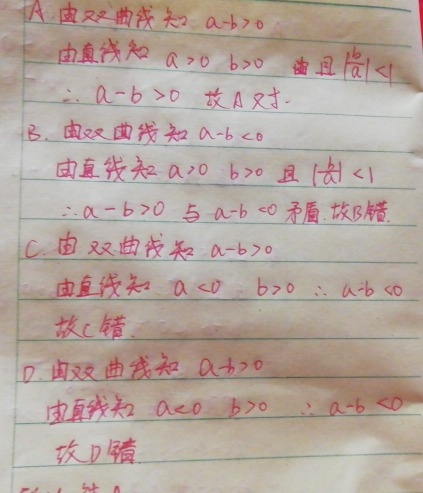 A. 由双曲线知 a-b>0
由直线知 a>0 b>0 且 |b/a|<1
∴ a-b>0 故A对.
B. 由双曲线知 a-b<0
由直线知 a>0 b>0 且 |b/a|<1
∴a-b>0 与 a-b<0 矛盾.故B错.
C. 由双曲线知 a-b>0
由直线知 a<0 b>0 ∴ a-b<0
故C错.
D. 由双曲线知 a-b>0
由直线知 a<0 b>0 ∴ a-b<0
故D错